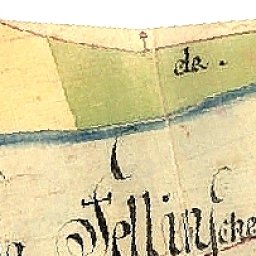 de.
Fellinsche